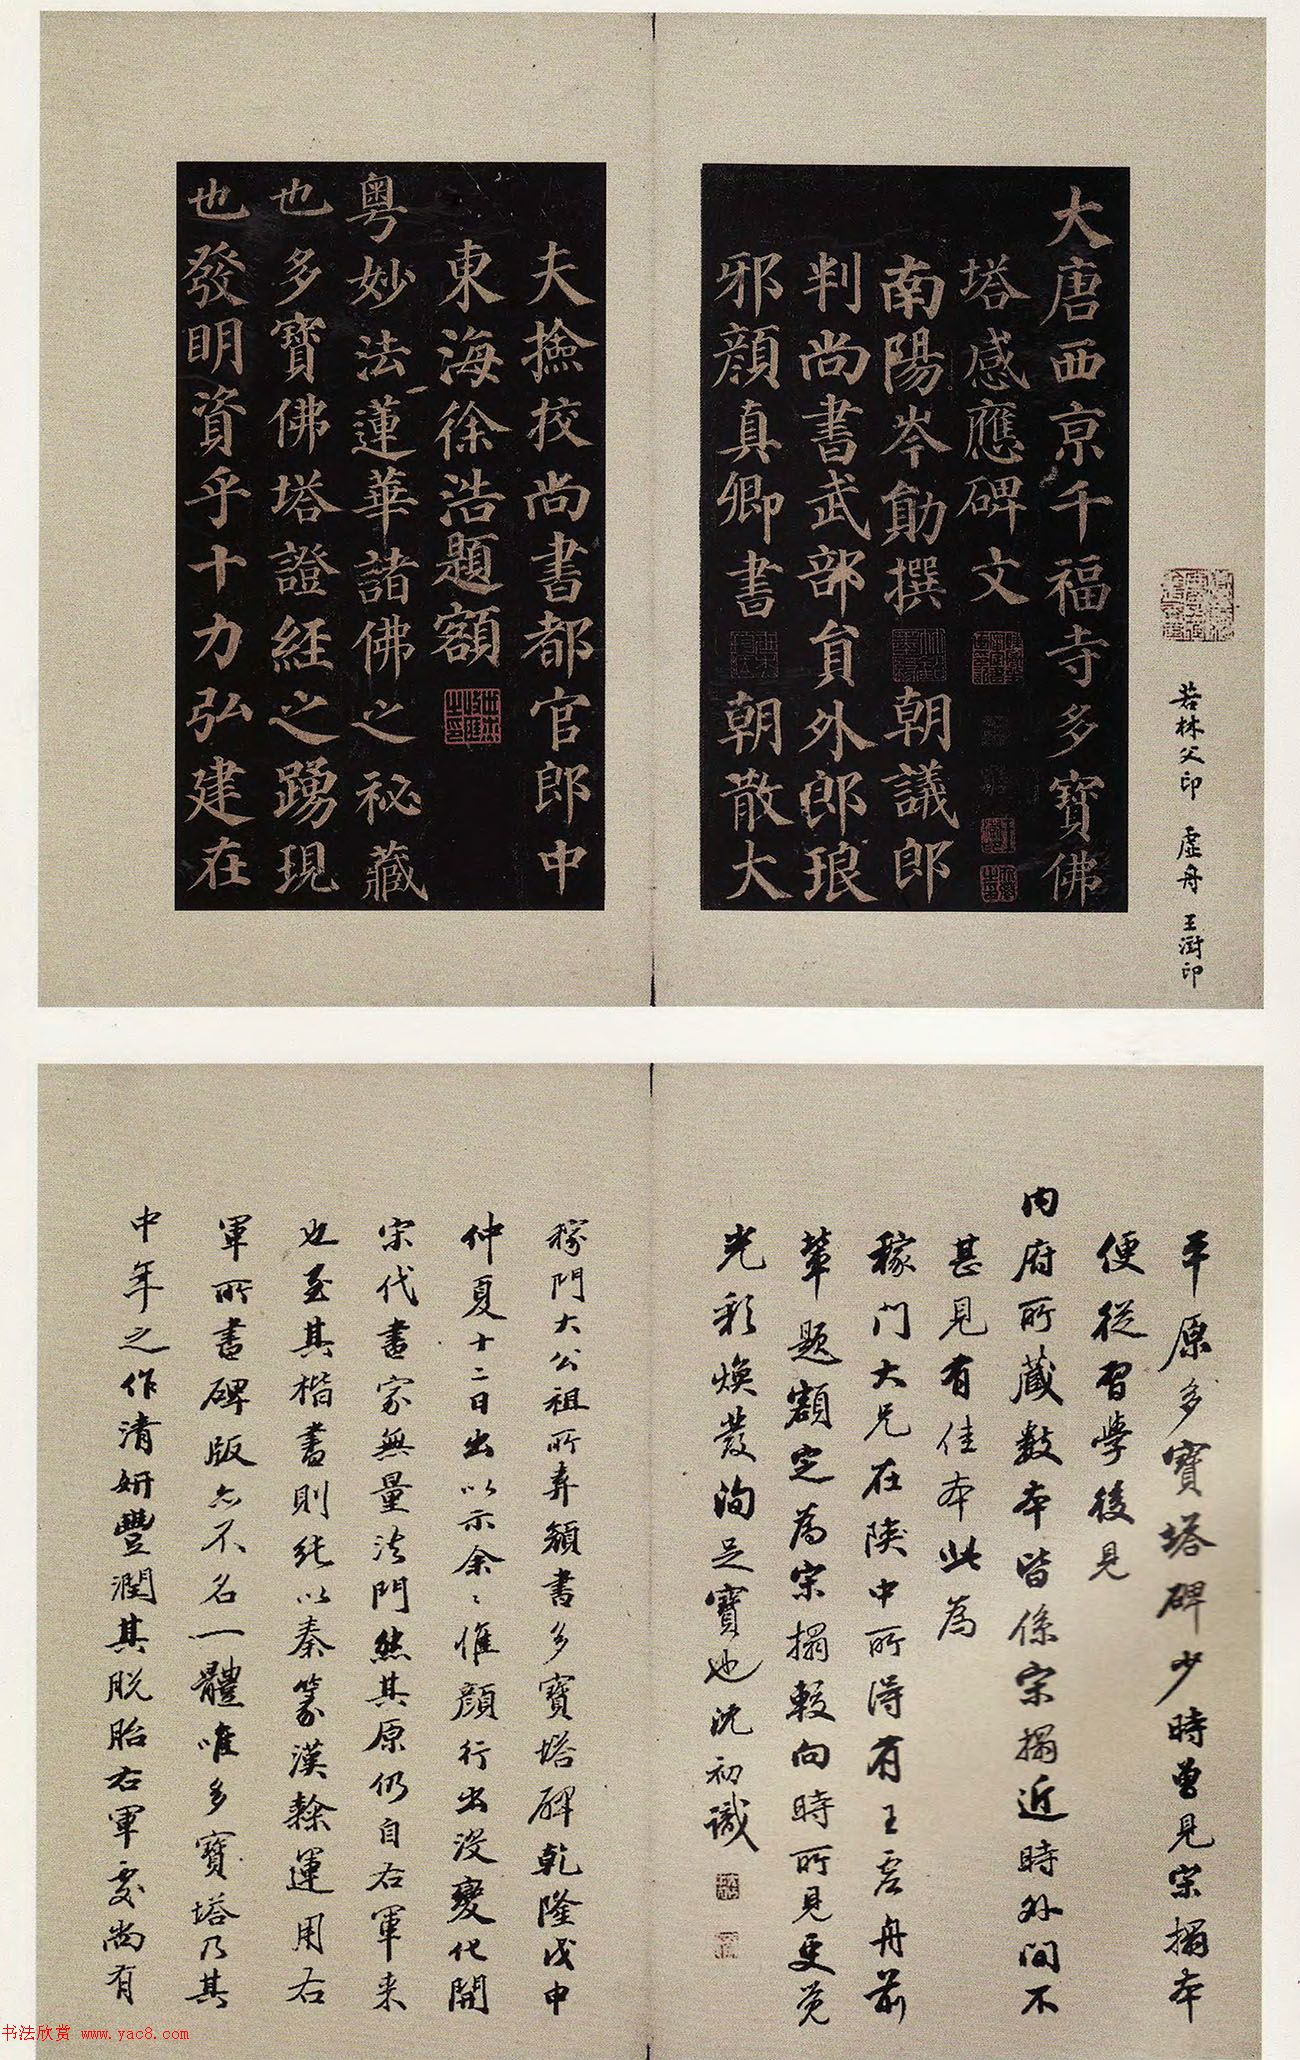 大唐西京千福寺多寶佛
塔感應碑文
南陽岑勛撰 朝議郎
判尚書武部員外郎琅
邪顏真卿書 朝散大
夫撿挍尚書都官郎中
東海徐浩題額
粵妙法蓮華諸佛之秘藏
也多寶佛塔證經之踴現
也發明資乎十力弘建在
若林父印 虛舟 王澍印
平原多寶塔碑少時曾見宋搨本
便從習學後見
內府所藏數本皆係宋搨近時外間不
甚見有佳本此為
稼門大兄在陝中所得有王虛舟前
輩題額定為宋搨較向時所見更覺
光彩煥發洵足寶也沈初識
稼門大公祖所弆顏書多寶塔碑乾隆戊申
仲夏十二日出以示余余惟顏行出沒變化開
宋代書家無量法門然其原仍自右軍来
也至其楷書則純以秦篆漢隸運用右
軍所書碑版亦不名一體唯多寶塔乃其
中年之作清妍豐潤其脫胎右軍處尚有
书法欣赏 www.yac8.com